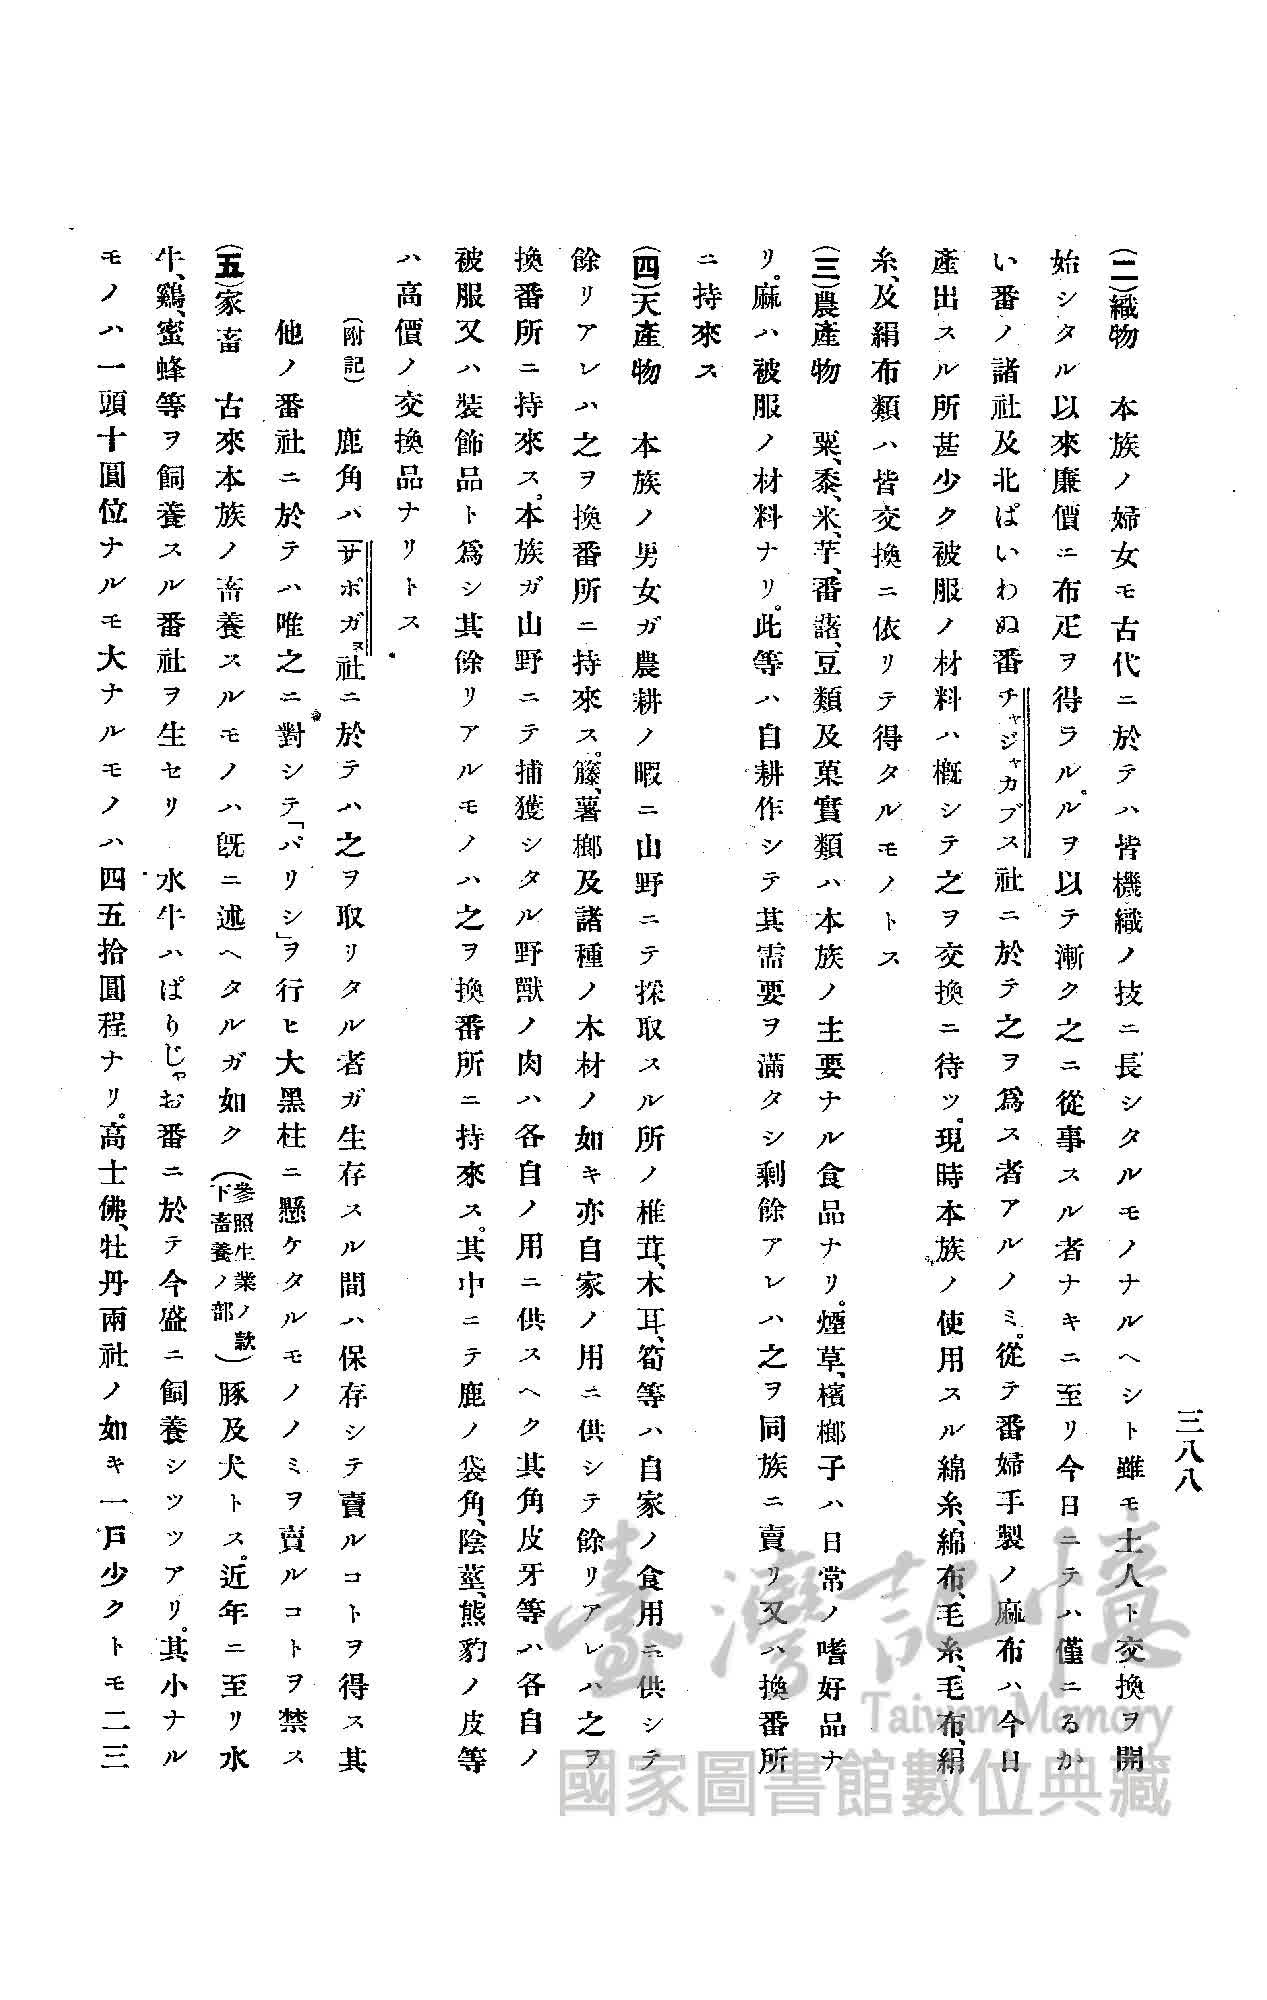 三八八
(二)織物　本族ノ婦女モ古代ニ於テハ皆機織ノ技ニ長シタルモノナルヘシト雖モ土人ト交換ヲ開
始シタル以來廉價ニ布疋ヲ得ラル。ルヲ以テ漸ク之ニ從事スル者ナキニ至リ今日ニテハ僅ニるか
い番ノ諸社及北ぱいわぬ番チャジャカブス社ニ於テ之ヲ爲ス者アルノミ。從テ番婦手製ノ麻布ハ今日
產出スル所甚少ク被服ノ材料ハ槪シテ之ヲ交換ニ待ツ。現時本族ノ使用スル綿糸、綿布、毛糸、毛布、絹
糸、及絹布類ハ皆交換ニ依リテ得タルモノトス
(三)農產物　粟、黍、米、芋、番藷、豆類及菓實類ハ本族ノ主要ナル食品ナリ。煙草、檳榔子ハ日常ノ嗜好品ナ
リ。麻ハ被服ノ材料ナリ。此等ハ自耕作シテ其需要ヲ滿タシ剩餘アレハ之ヲ同族ニ賣リ又ハ換番所
ニ持來ス
(四)天產物　本族ノ男女ガ農耕ノ暇ニ山野ニテ採取スル所ノ椎茸、木耳、筍等ハ自家ノ食用ニ供シテ
餘リアレハ之ヲ換番所ニ持來ス。籐、薯榔及諸種ノ木材ノ如キ亦自家ノ用ニ供シテ餘リアレハ之ヲ
換番所ニ持來ス。本族ガ山野ニテ捕獲シタル野獸ノ肉ハ各自ノ用ニ供スヘク其角皮牙等ハ各自ノ
被服又ハ裝飾品ト爲シ其餘リアルモノハ之ヲ換番所ニ持來ス。其中ニテ鹿ノ袋角、陰莖、熊豹ノ皮等
ハ高價ノ交換品ナリトス
(附記)　鹿角ハサポガヌ社ニ於テハ之ヲ取リタル者ガ生存スル間ハ保存シテ賣ルコトヲ得ス其
他ノ番社ニ於テハ唯之ニ對シテ「パリシ」ヲ行ヒ大黑柱ニ懸ケタルモノノミヲ賣ルコトヲ禁ス
(五)家畜　古來本族ノ畜養スルモノハ旣ニ述ヘタルガ如ク(參照生業ノ款下畜養ノ部)豚及犬トス。近年ニ至リ水
牛、鷄、蜜蜂等ヲ飼養スル番社ヲ生セリ　水牛ハぱりじゃお番ニ於テ今盛ニ飼養シツツアリ。其小ナル
モノハ一頭十圓位ナルモ大ナルモノハ四五拾圓程ナリ。高士佛、牡丹兩社ノ如キ一戶少クトモ二三
臺灣記憶
Taiwan Memory
國家圖書館數位典藏